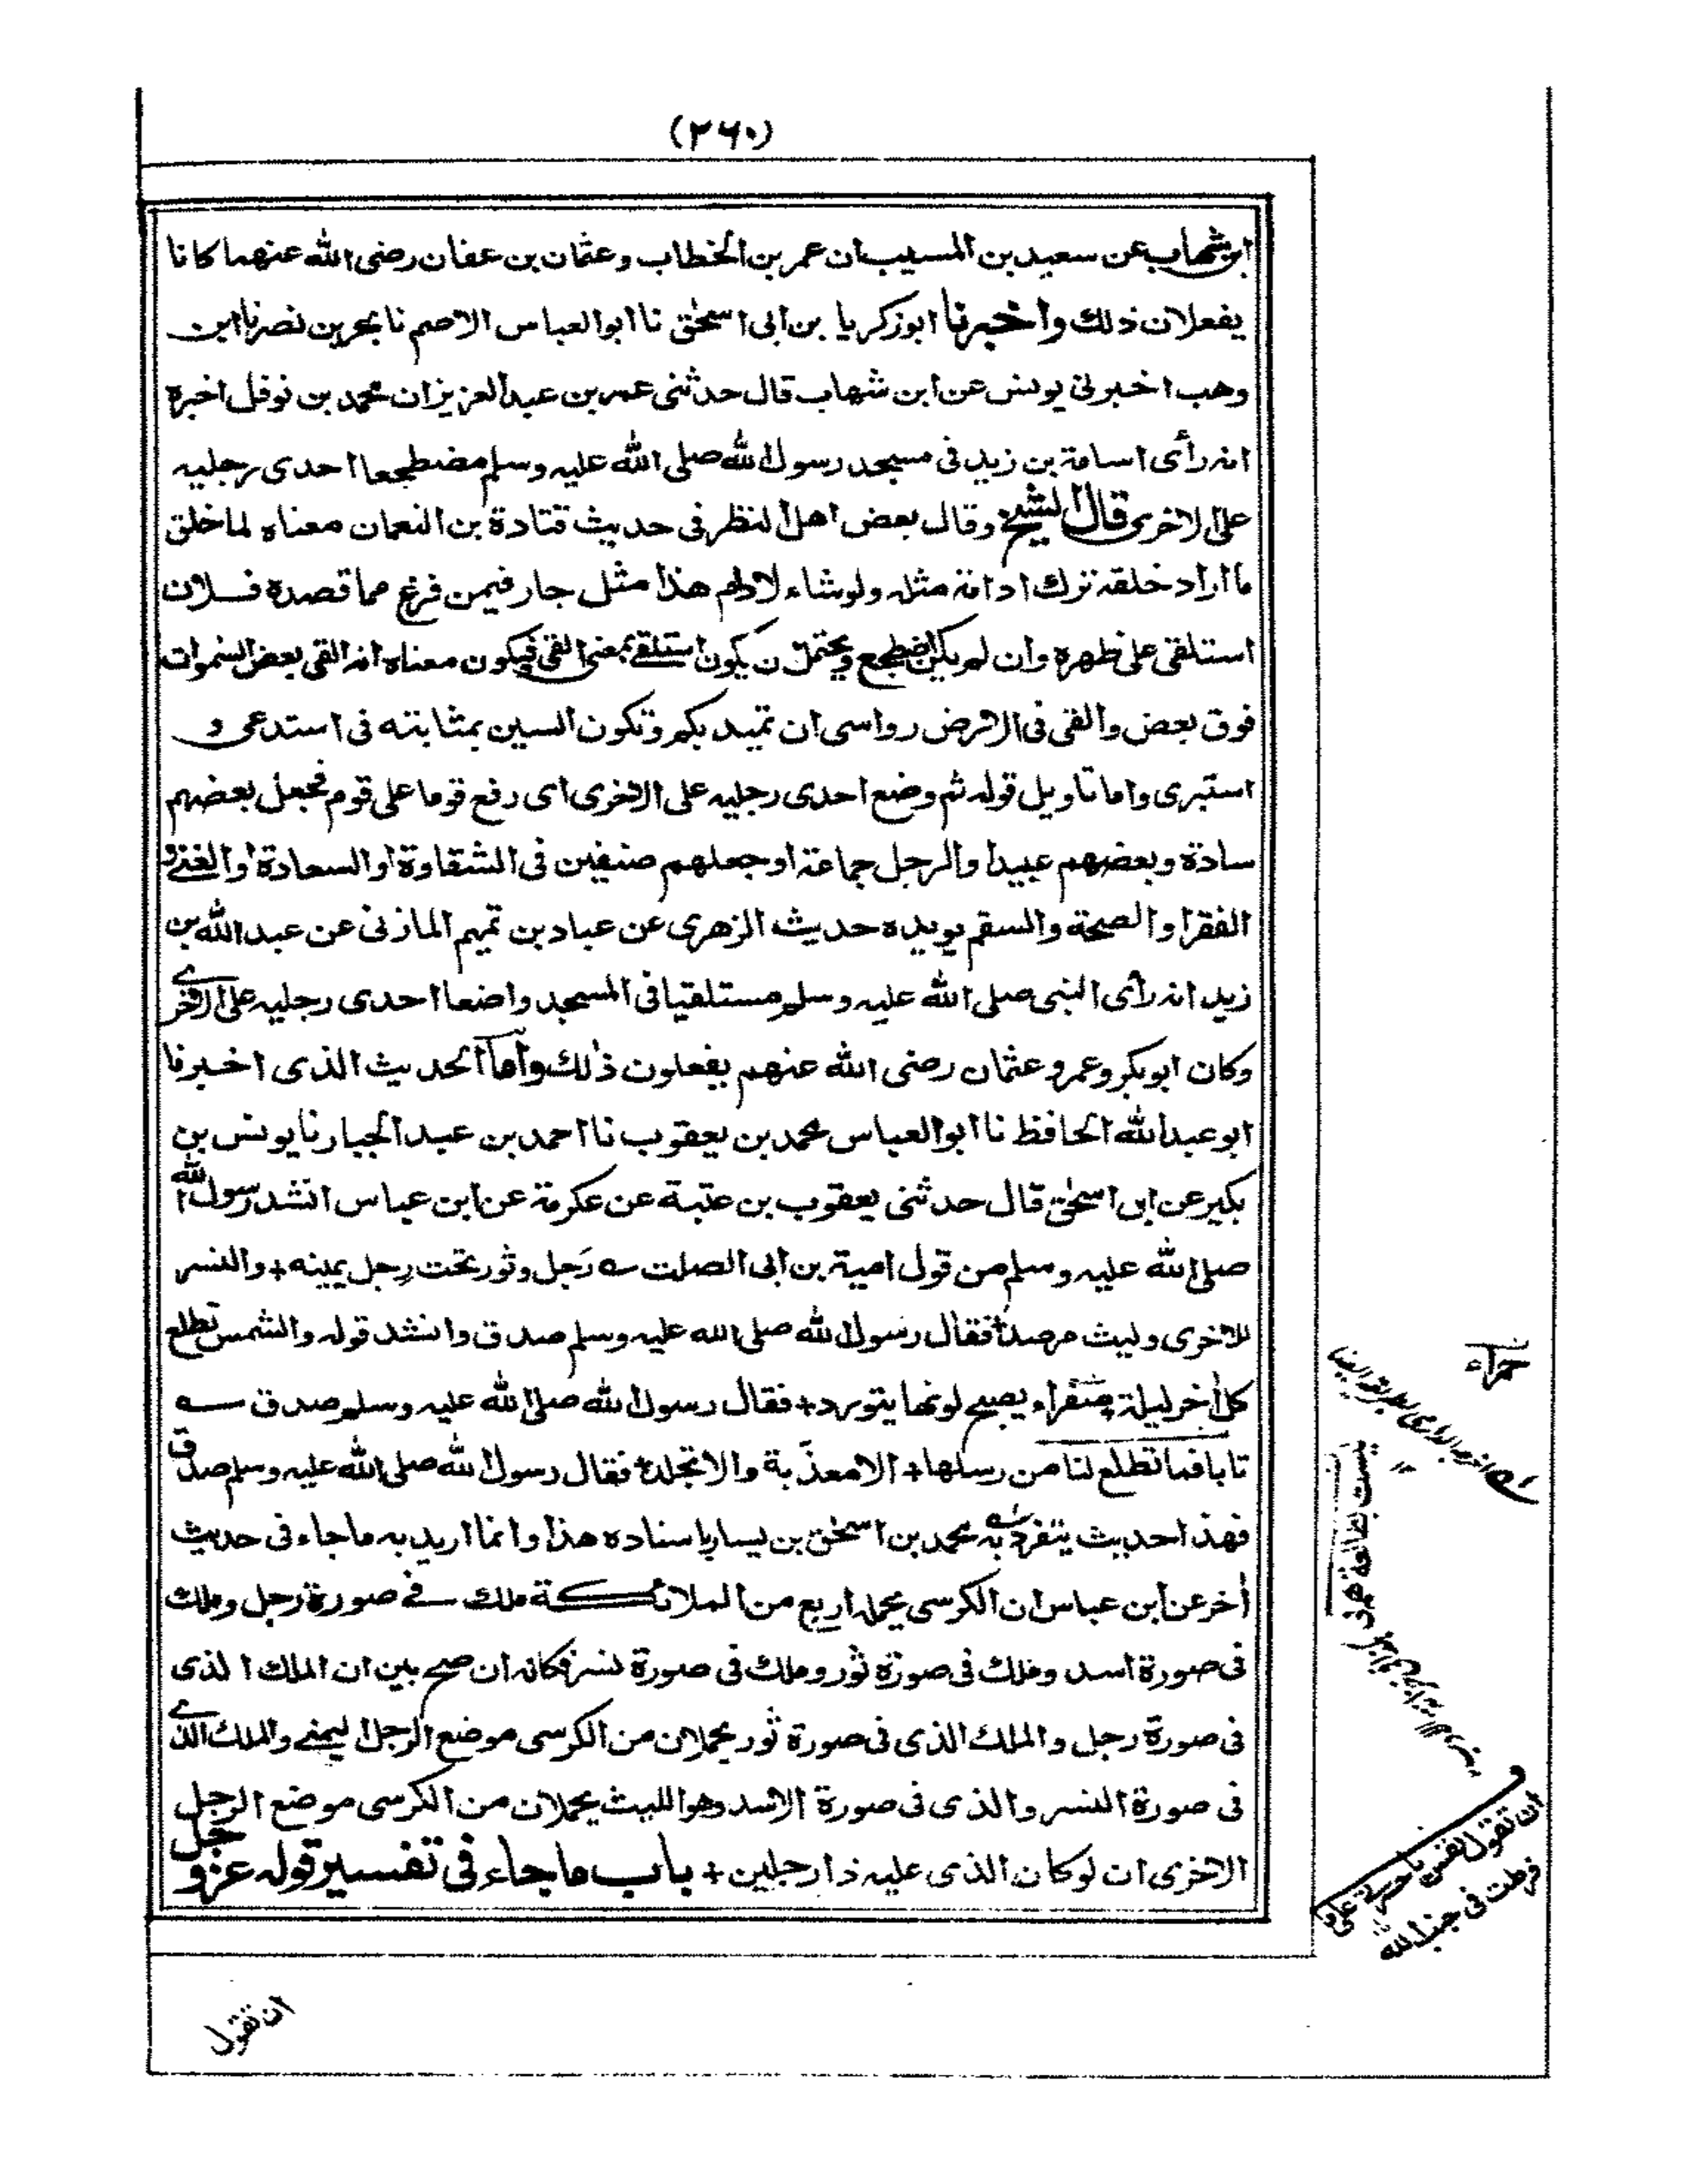 (٢٦٠)
ابن شهاب عن سعيد بن المسيب ان عمر بن الخطاب وعثمان بن عفان رضى الله عنهما كانا
يفعلان ذلك واخبرنا ابوزكريا بن ابى اسحٰق نا ابوالعباس الاصم نا بحر بن نصر نا ابن
وهب اخبرنى يونس عن ابن شهاب قال حدثنى عمر بن عبدالعزيز ان محمد بن نوفل اخبره
انه رأى اسامة بن زيد فى مسجد رسول الله صلى الله عليه وسلم مضطجعا احدى رجليه
على الاخرى قال الشيخ وقال بعض اهل النظر فى حديث قتادة بن النعمان معناه لما خلق
ما اراد خلقه ترك ادامة مثله ولوشاء لادام هذا مثل جار فيمن فرغ مما قصده فلان
استلقى على ظهره وان لم يكن اضطجع ويحتمل ان يكون استلقى بمعنى القى فيكون معناه انه القى بعض السموات
فوق بعض والقى فى الارض رواسى ان تميد بكم وتكون السين بمثابته فى استدعى و
استبرى واما تاويل قوله ثم وضع احدى رجليه على الاخرى اى رفع قوما على قوم فجعل بعضهم
سادة وبعضهم عبيدا والرجل جماعة اوجعلهم صنفين فى الشقاوة او السعادة او الغنے و
الفقر او الصحة والسقم يويده حديث الزهرى عن عباد بن تميم المازنى عن عبدالله بن
زيد انه رأى النبى صلى الله عليه وسلم مستلقيا فى المسجد واضعا احدى رجليه على الاخرے
وكان ابوبكر وعمر وعثمان رضى الله عنهم يفعلون ذٰلك وأما الحديث الذى اخبرنا
ابوعبدالله الحافظ نا ابوالعباس محمد بن يعقوب نا احمد بن عبدالجبار نا يونس بن
بكير عن ابن اسحٰق قال حدثنى يعقوب بن عتبة عن عكرمة عن ابن عباس انشد رسول الله
صلى الله عليه وسلم من قول امية بن ابى الصلت ؎ رَجل وثور تحت رِجل يمينه + والنسر
للاخرى وليث مرصد + فقال رسول الله صلى الله عليه وسلم صدق وانشد قوله والشمس تطلع
كل اٰخر ليلة + صفراء يصبح لونها يتورد + فقال رسول الله صلى الله عليه وسلم صدق ؎
تابا فما تطلع لنا من رسلها + الا معذّبة والا تجلد + فقال رسول الله صلى الله عليه وسلم صدق
فهذا حديث يتفرد به محمد بن اسحٰق بن يسار باسناده هذا وانما اريد به ما جاء فى حديث
اٰخر عن ابن عباس ان الكرسى يحمله اربع من الملائكة ملك فے صورة رجل وملك
فى صورة اسد وملك فى صورة ثور وملك فى صورة نسر فكانه ان صح بين ان الملك الذى
فى صورة رجل والملك الذى فى صورة ثور يحملان من الكرسى موضع الرجل اليمنے والملك الذے
فى صورة النسر والذى فى صورة الاسد وهو الليث يحملان من الكرسى موضع الرجل
الاخرى ان لو كان الذى عليه ذا رجلين + باب ما جاء فى تفسير قوله عز وجل
حمراء
ليست بطالعة لهم فى
ان تقول نفس يا حسرتى على ما
فرطت فى جنب الله
ان تقول